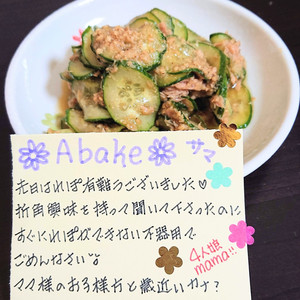 Abake サマ
先日はれぽ有難うございました♡
折角興味を持って聞いて下さったのに
すぐにれぽができない不器用で
ごめんなさい
ママ様のお子様方と歳近いカナ?
4人娘
mama!!